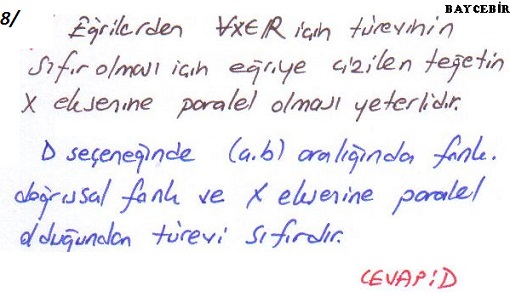 8/
BAYCEBİR
Eğrilerden ∀x∈R için türevinin
sıfır olması için eğriye çizilen teğetin
X eksenine paralel olması yeterlidir.
D seçeneğinde (a.b) aralığında fonk.
doğrusal fonk ve X eksenine paralel
olduğundan türevi sıfırdır.
CEVAP:D